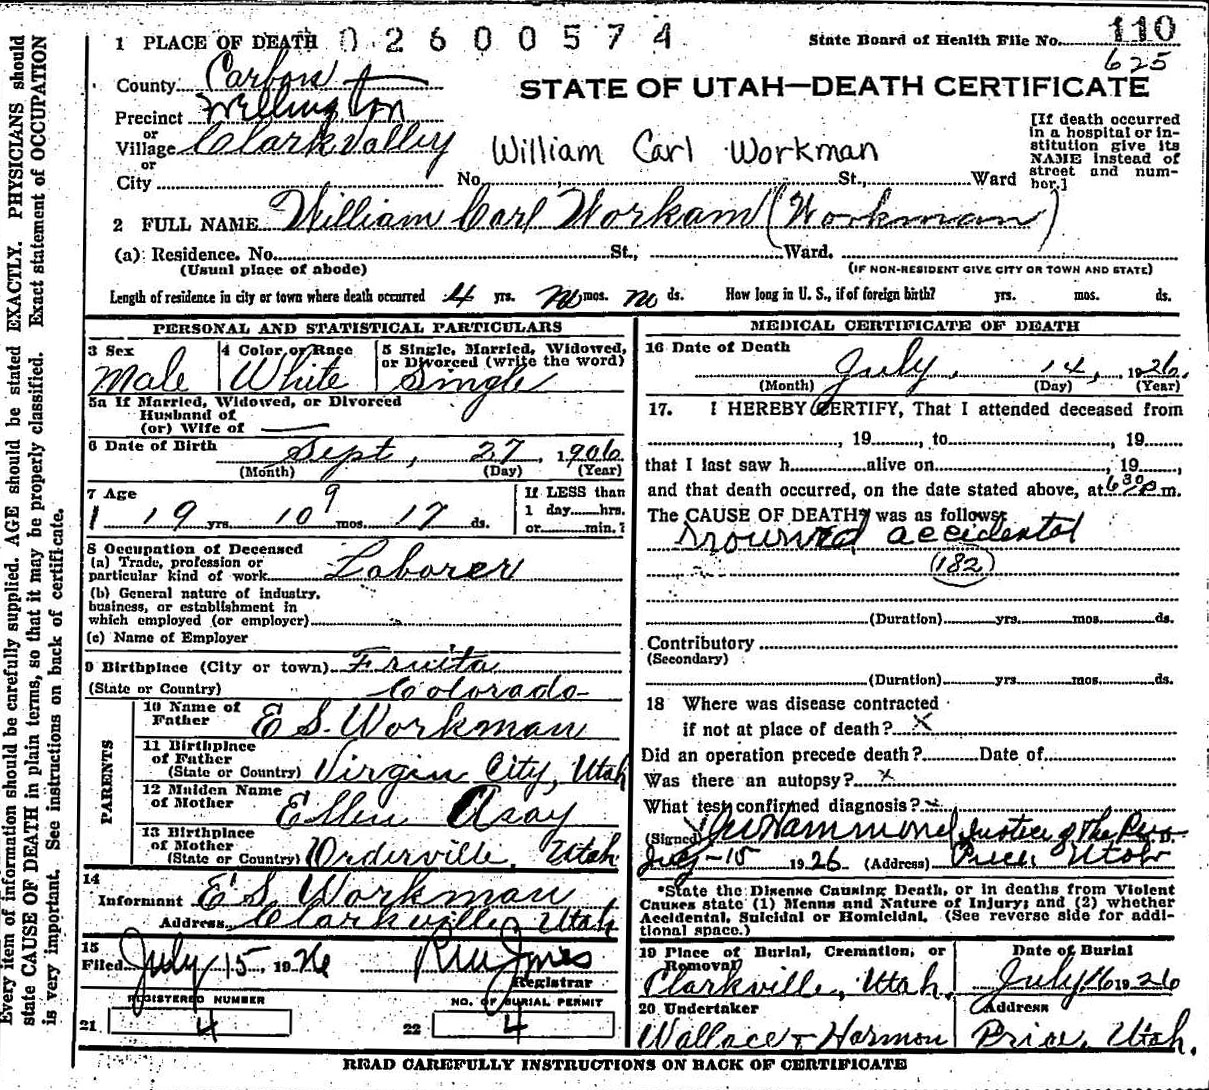 Every item of information should be carefully supplied. AGE should be stated EXACTLY. PHYSICIANS should
state CAUSE OF DEATH in plain terms, so that it may be properly classified. Exact statement of OCCUPATION
is very important. See instructions on back of certificate.
1 PLACE OF DEATH 02600574
State Board of Health File No. 110
625
County Carbon
STATE OF UTAH—DEATH CERTIFICATE
Precinct Wellington
or
Village Clark Valley
or
William Carl Workman
[If death occurred
in a hospital or in-
stitution give its
NAME instead of
street and num-
ber.]
City No. St., Ward
2 FULL NAME William Carl Workam (Workman)
(a) Residence. No. St., Ward.
(Usual place of abode) (IF NON-RESIDENT GIVE CITY OR TOWN AND STATE)
Length of residence in city or town where death occurred 4 yrs. no mos. no ds. How long in U. S., if of foreign birth? yrs. mos. ds.
PERSONAL AND STATISTICAL PARTICULARS
3 Sex 4 Color or Race 5 Single, Married, Widowed,
or Divorced (write the word)
Male White Single
5a If Married, Widowed, or Divorced
Husband of
(or) Wife of
6 Date of Birth Sept, 27, 1906
(Month) (Day) (Year)
7 Age
19 yrs. 10 9 mos. 17 ds.
If LESS than
1 day hrs.
or min.?
8 Occupation of Deceased
(a) Trade, profession or
particular kind of work Laborer
(b) General nature of industry,
business, or establishment in
which employed (or employer)
(c) Name of Employer
9 Birthplace (City or town) Fruita
(State or Country) Colorado
PARENTS
10 Name of
Father E S. Workman
11 Birthplace
of Father
(State or Country) Virgin City, Utah
12 Maiden Name
of Mother Ellen Asay
13 Birthplace of
Mother
(State or Country) Orderville, Utah
14
Informant E S Workman
Address Clarkville Utah
15
Filed July 15, 1926
Registrar
REGISTERED NUMBER NO. OF BURIAL PERMIT
21 4 22 4
MEDICAL CERTIFICATE OF DEATH
16 Date of Death July, 14, 1926.
(Month) (Day) (Year)
17. I HEREBY CERTIFY, That I attended deceased from
, 19 , to , 19
that I last saw h alive on , 19 ,
and that death occurred, on the date stated above, at 6 30 p m.
The CAUSE OF DEATH* was as follows:
Drownd accidental
(182)
(Duration) yrs. mos. ds.
Contributory
(Secondary)
(Duration) yrs. mos. ds.
18 Where was disease contracted
if not at place of death? x
Did an operation precede death? Date of
Was there an autopsy? x
What test confirmed diagnosis? x
(Signed) J W Hammond Justice of The Peace
July-15 1926 (Address) Price, Utah
*State the Disease Causing Death, or in deaths from Violent
Causes state (1) Means and Nature of Injury; and (2) whether
Accidental, Suicidal or Homicidal. (See reverse side for addi-
tional space.)
19 Place of Burial, Cremation, or
Removal? Date of Burial
Clarkville, Utah. July 16 1926
20 Undertaker Address
Wallace & Harmon Price, Utah.
READ CAREFULLY INSTRUCTIONS ON BACK OF CERTIFICATE